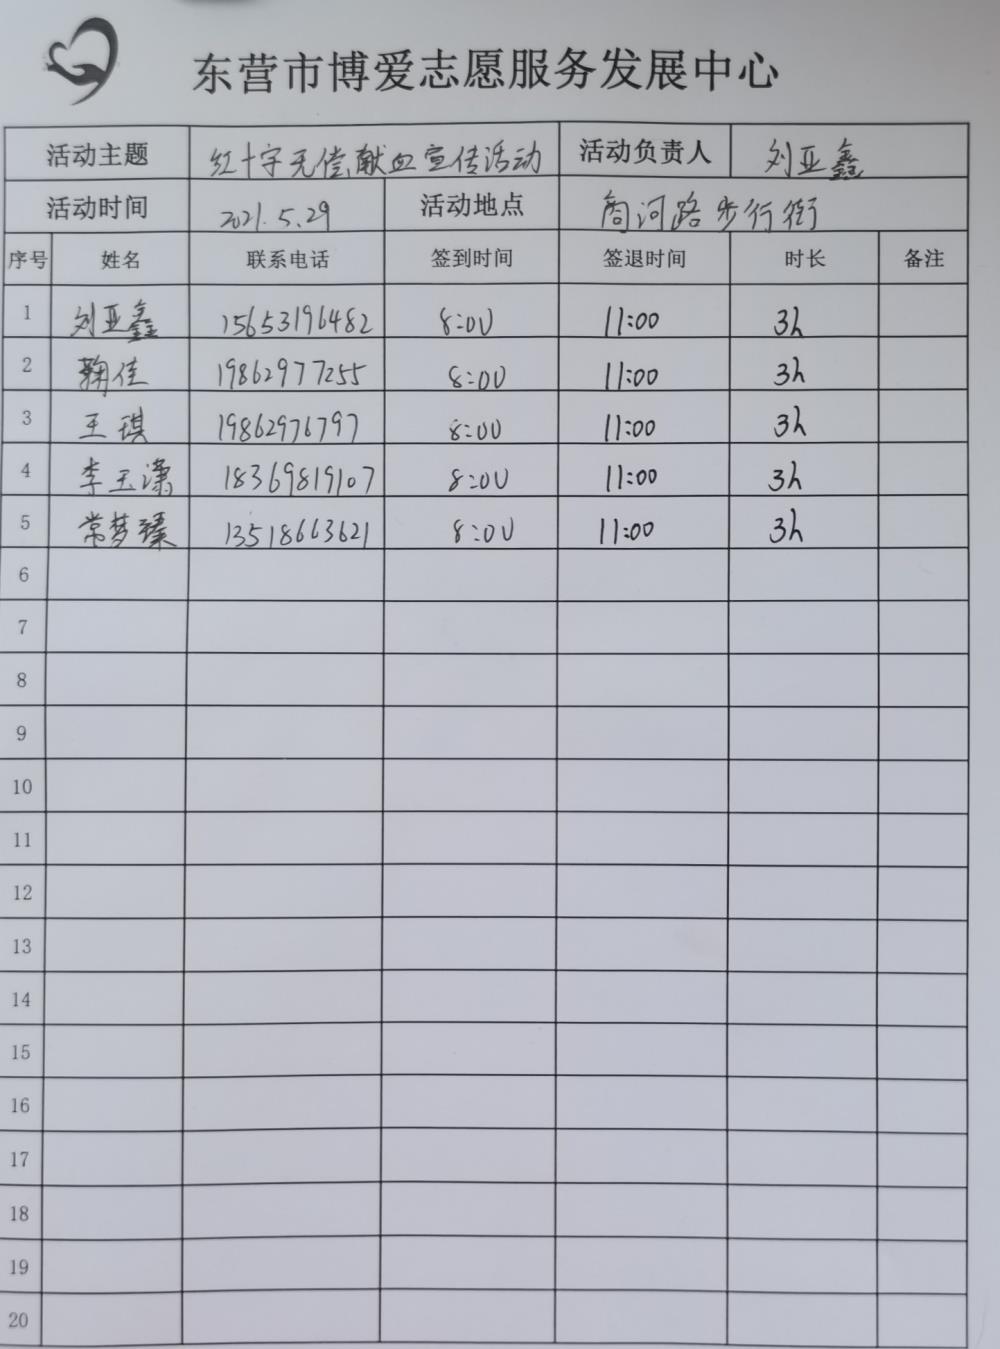 东营市博爱志愿服务发展中心
活动主题 红十字无偿献血宣传活动 活动负责人 刘亚鑫
活动时间 2021.5.29 活动地点 商河路步行街
序号 姓名 联系电话 签到时间 签退时间 时长 备注
1 刘亚鑫 15653196482 8:00 11:00 3h
2 鞠佳 19862977255 8:00 11:00 3h
3 王琪 19862976797 8:00 11:00 3h
4 李玉潇 18369819107 8:00 11:00 3h
5 常梦臻 13518663621 8:00 11:00 3h
6
7
8
9
10
11
12
13
14
15
16
17
18
19
20